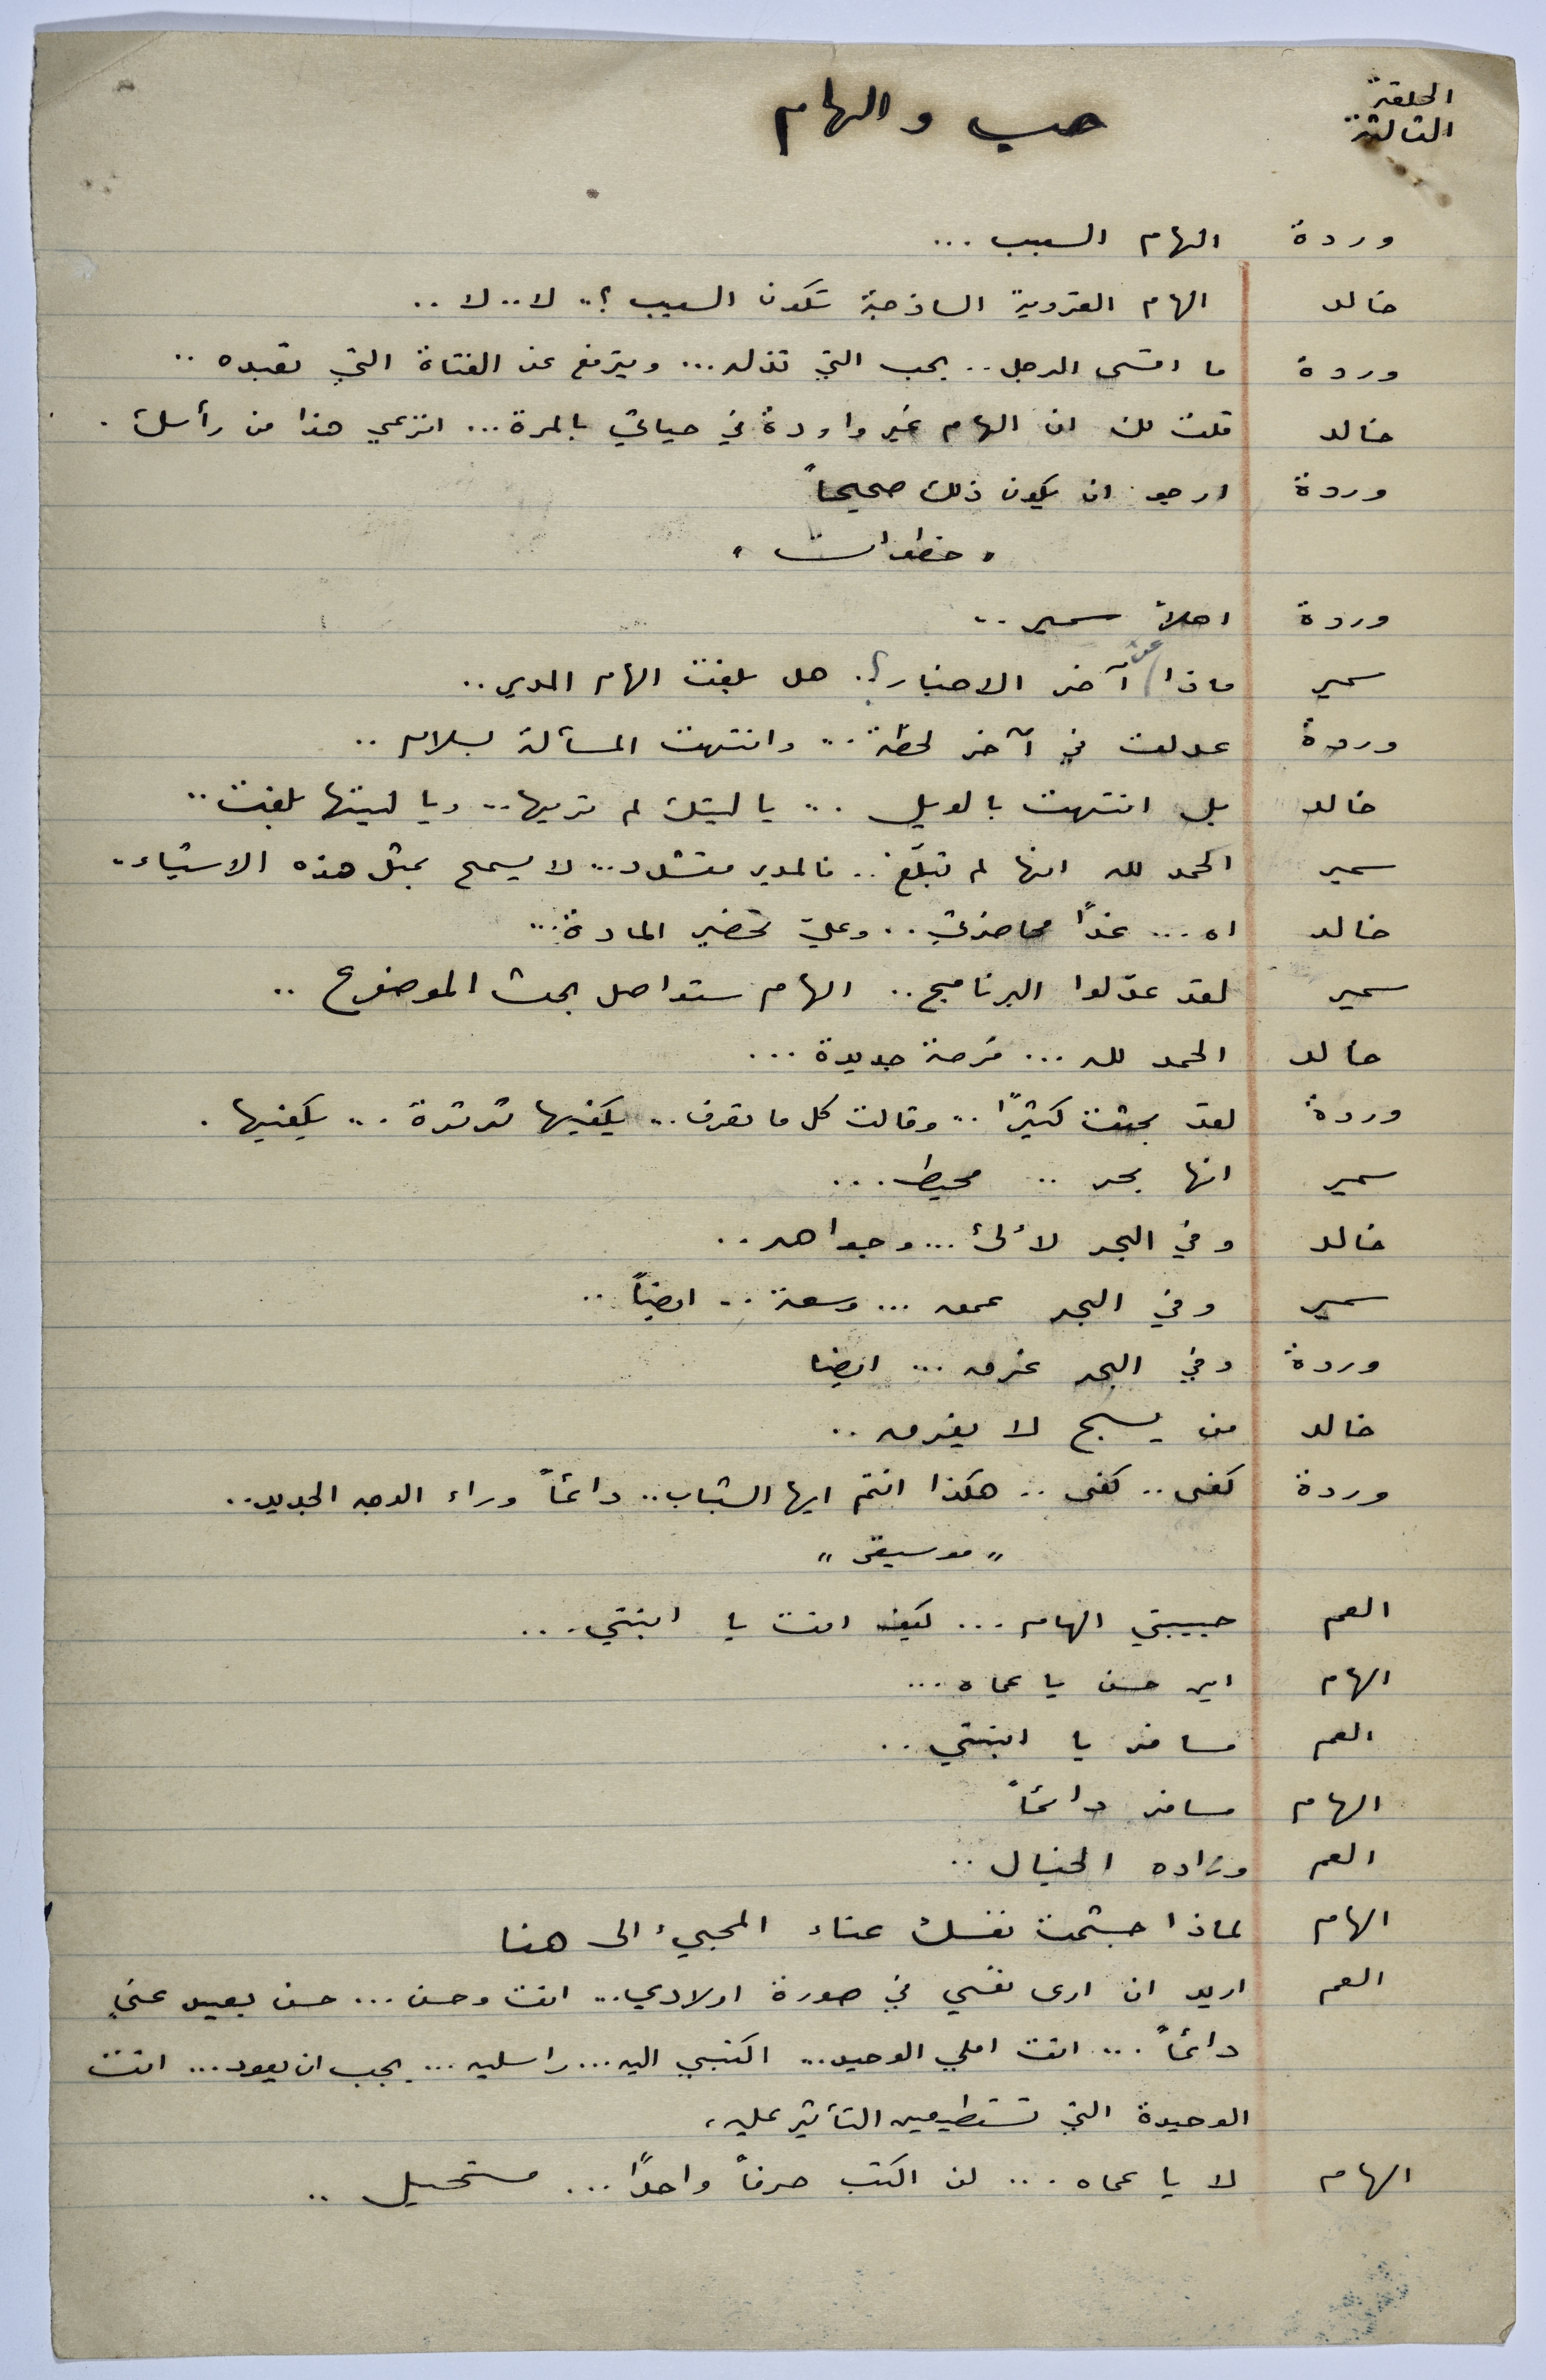 الحلقة
الثالثة
حب والهام
وردة الهام السبب ...
خالد الهام القروية الساذجة تكون السبب ؟.. لا.. لا ..
وردة ما اقسى الرجل .. يحب التي تذله ... ويترفع عن الفتاة التي تعبده ..
خالد قلت لك ان الهام غير واردة في حياتي بالمرة ... انزعي هذا من رأسك .
وردة ارجو ان يكون ذلك صحيحاً
" خطوات "
وردة اهلاً سمير ..
سمير ماذا عن آخر الاخبار ؟. هل بلغت الهام المدير ..
وردة عدلت في آخر لحظة .. وانتهت المسألة بسلام ..
خالد بل انتهت بالويل .. يا ليتك لم ترميها .. ويا ليتها بلغت ..
سمير الحمد لله انها لم تبلّغ .. فالمدير متشدد .. لا يسمح بمثل هذه الاشياء ..
خالد اه ... غداً محاضرتي .. وعليّ تحضير المادة ...
سمير لقد عدّلوا البرنامج .. الهام ستواصل بحث الموضوع ..
خالد الحمد لله ... فرصة جديدة ...
وردة لقد بحثت كثيراً .. وقالت كل ما تعرف .. يكفيها ثرثرة .. يكفيها .
سمير انها بحر .. محيط ...
خالد وفي البحر لألئ ... وجواهر ..
سمير وفي البحر عمق ... وسعة .. ايضاً ..
وردة وفي البحر غرق ... ايضا
خالد من يسبح لا يغرق ..
وردة كفى .. كفى .. هكذا انتم ايها الشباب .. دائماً وراء الوجه الجديد ..
" موسيقى "
العم حبيبتي الهام ... كيف انت يا ابنتي ...
الهام اين حسن يا عماه ...
العم مسافر يا ابنتي ..
الهام مسافر دائماً
العم وزاده الخيال ..
الهام لماذا جشمت نفسك عناء المجيء الى هنا
العم اريد ان ارى نفسي في صورة اولادي .. انت وحسن ... حسن بعيد عني
دائماً ... انت املي الوحيد ... اكتبي اليه ... راسليه ... يجب ان يعود ... انت
الوحيدة التي تستطيعين التأثير عليه ،
الهام لا يا عماه ... لن اكتب حرفاً واحداً ... مستحيل ..